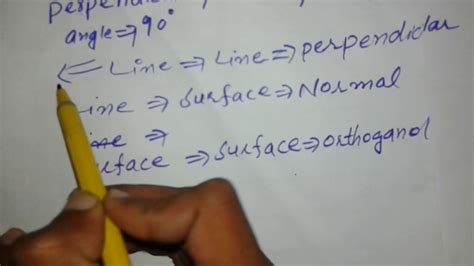 angle ⇒ 90°
⇐ Line ⇒ Line ⇒ perpendiclar
Line ⇒ Surface ⇒ Normal
⇒
Surface ⇒ Surface ⇒ orthoganol